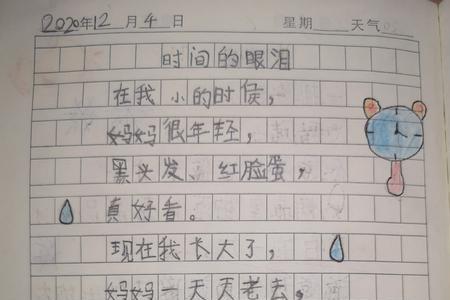 2020年12月4日 星期 天气
时间的眼泪
在我小的时侯，
妈妈很年轻，
黑头发、红脸蛋，
真好看。
现在我长大了，
妈妈一天天老去，